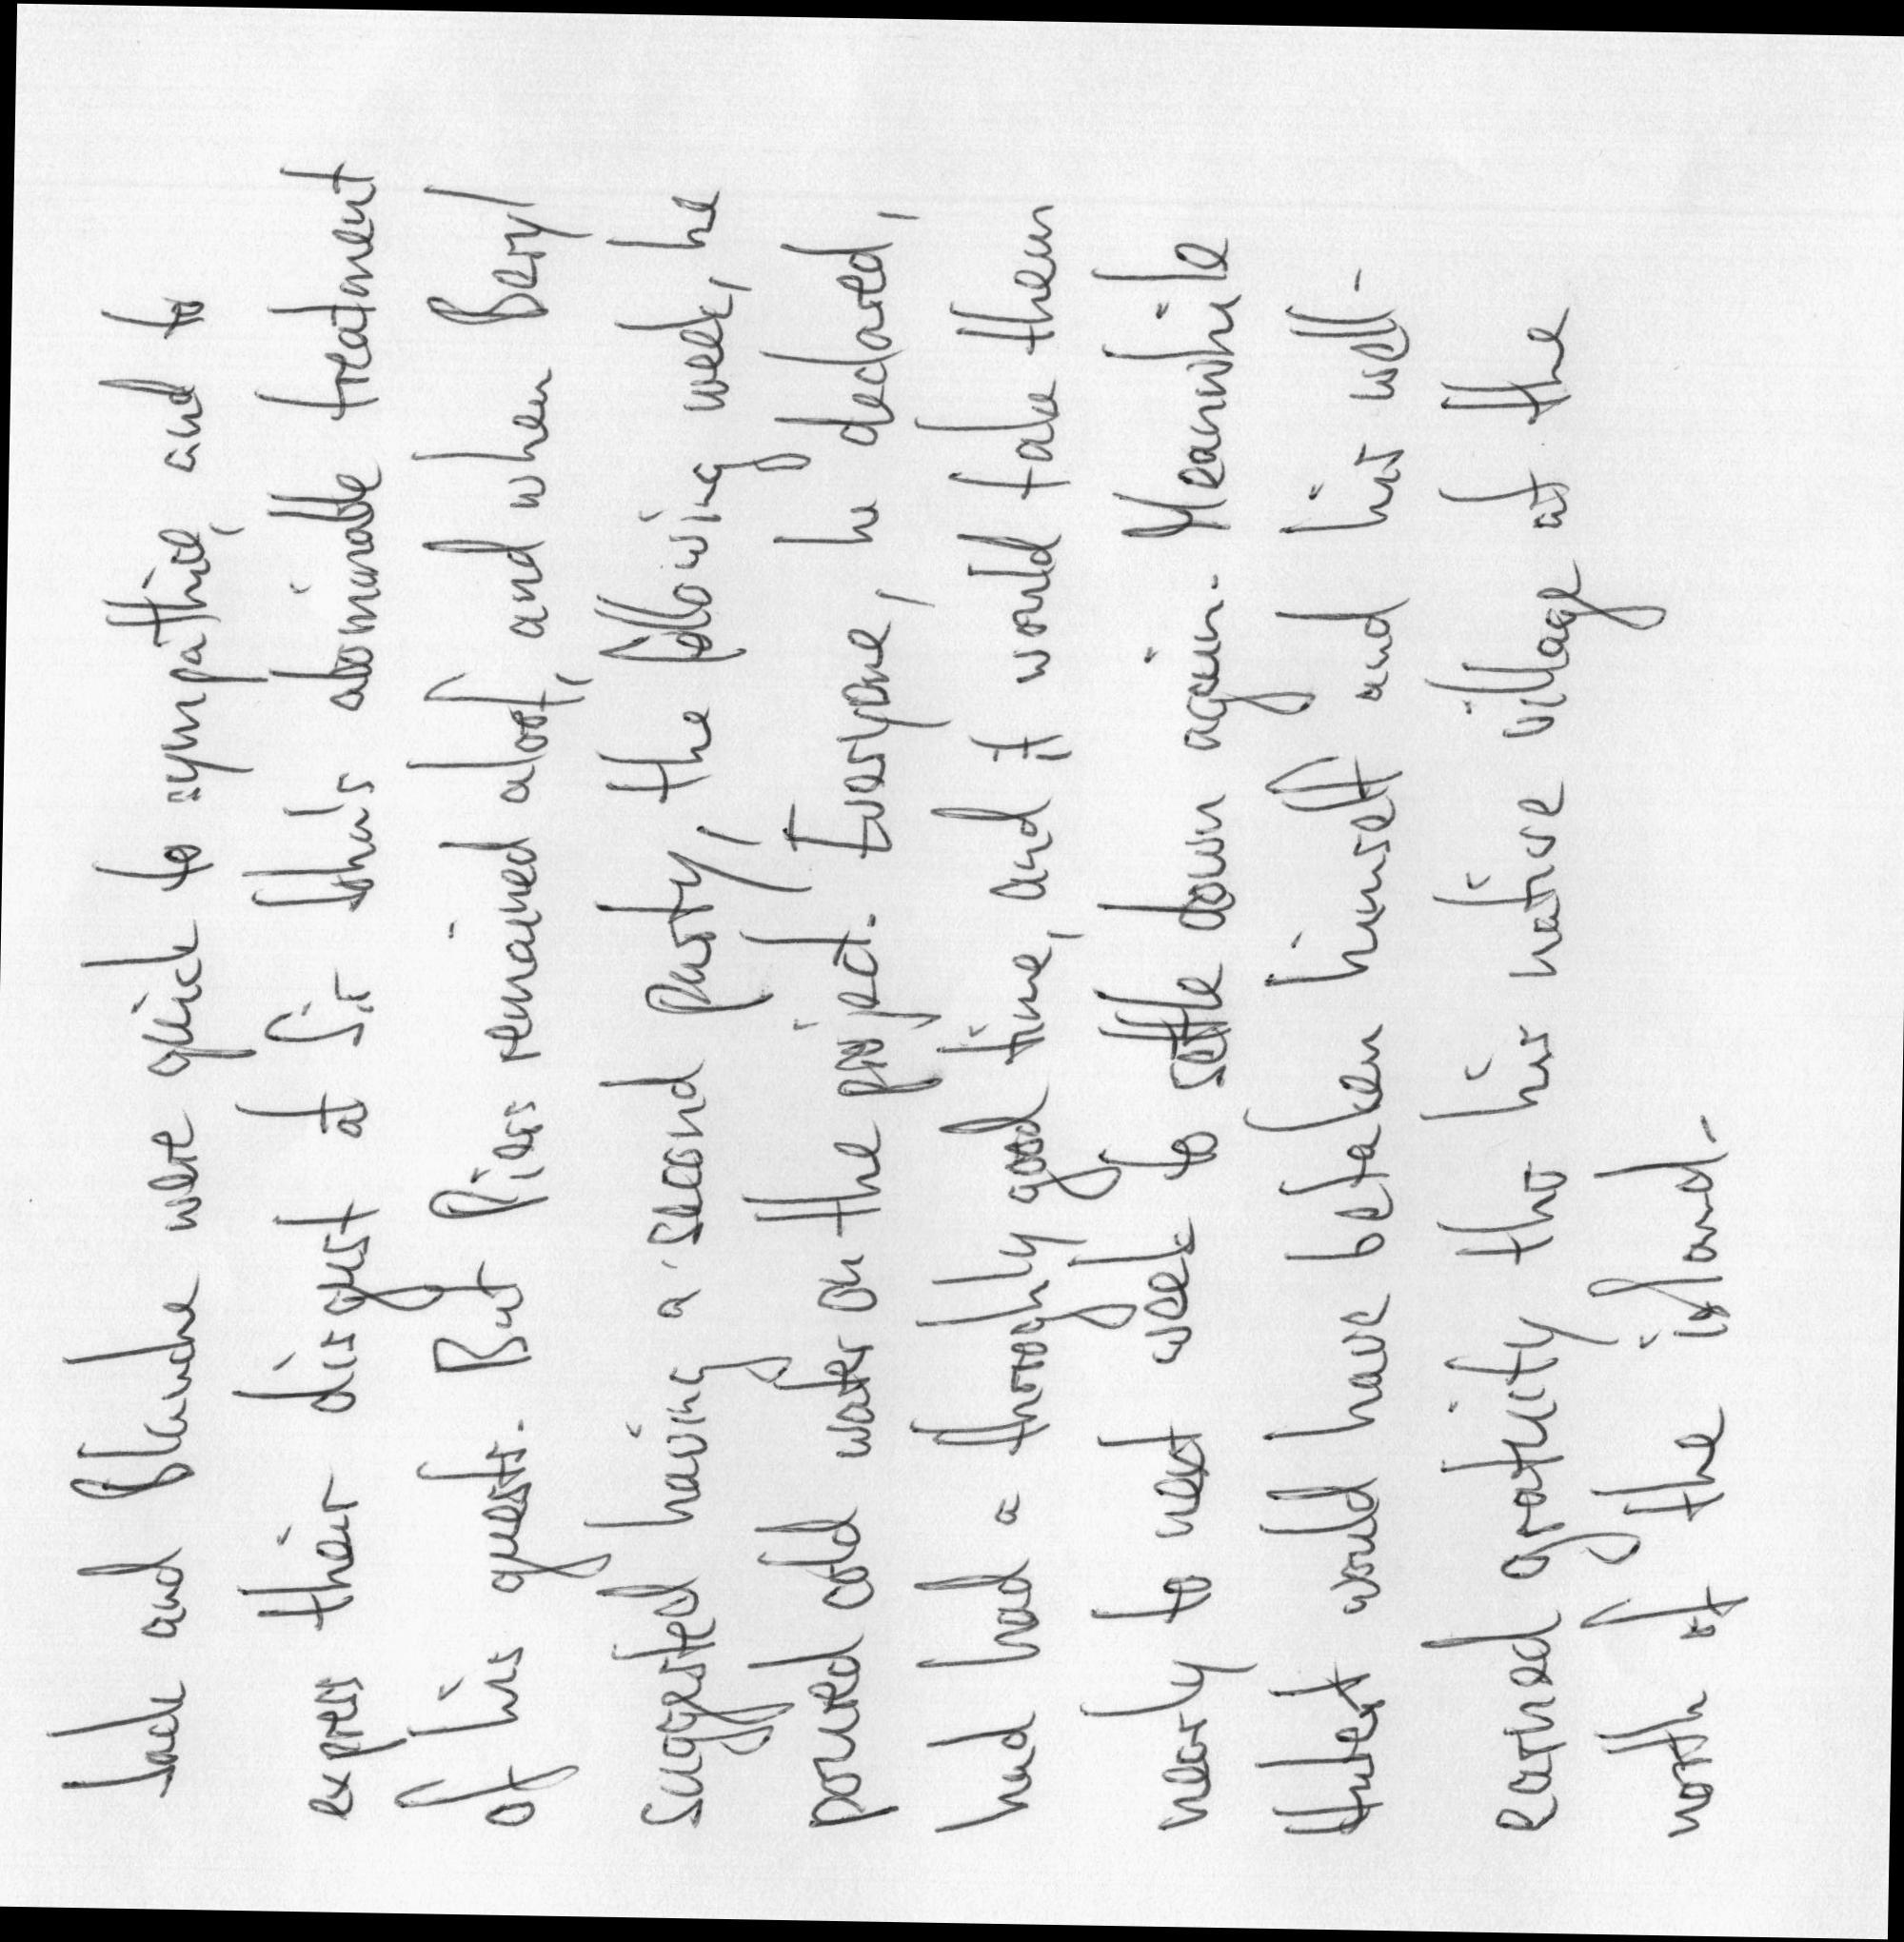 Jack and Blanche were quick to sympathise, and to
express their disgust at Sir John's abominable treatment
of his guests. But Piers remained aloof, and when Beryl
suggested having a second party, the following week, he
poured cold water on the project. Everyone, he declared,
had had a thoroughly good time, and it would take them
nearly to next week to settle down again. Meanwhile
Hubert would have betaken himself and his well-
earned gratuity tho his native village at the
north of the island.